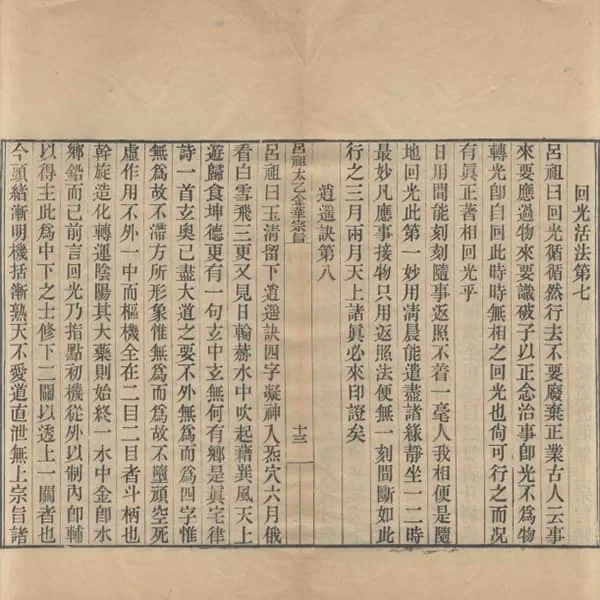 回光活法第七
呂祖曰回光循循然行去不要廢棄正業古人云事
來要應過物來要識破子以正念治事卽光不爲物
轉光卽自回此時時無相之回光也尙可行之而況
有眞正著相回光乎
日用間能刻刻隨事返照不着一毫人我相便是隨
地回光此第一妙用淸晨能遣盡諸緣靜坐一二時
最妙凡應事接物只用返照法便無一刻間斷如此
行之三月兩月天上諸眞必來印證矣
逍遙訣第八
呂祖太乙金華宗旨
十三
呂祖曰玉淸留下逍遙訣四字凝神入炁穴六月俄
看白雪飛三更又見日輪赫水中吹起藉巽風天上
遊歸食坤德更有一句玄中玄無何有鄕是眞宅律
詩一首玄奧已盡大道之要不外無爲而爲四字惟
無爲故不滯方所形象惟無爲而爲故不墮頑空死
虛作用不外一中而樞機全在二目二目者斗柄也
斡旋造化轉運陰陽其大藥則始終一水中金卽水
鄕鉛而已前言回光乃指點初機從外以制內卽輔
以得主此爲中下之士修下二關以透上一關者也
今頭緒漸明機括漸熟天不愛道直泄無上宗旨諸